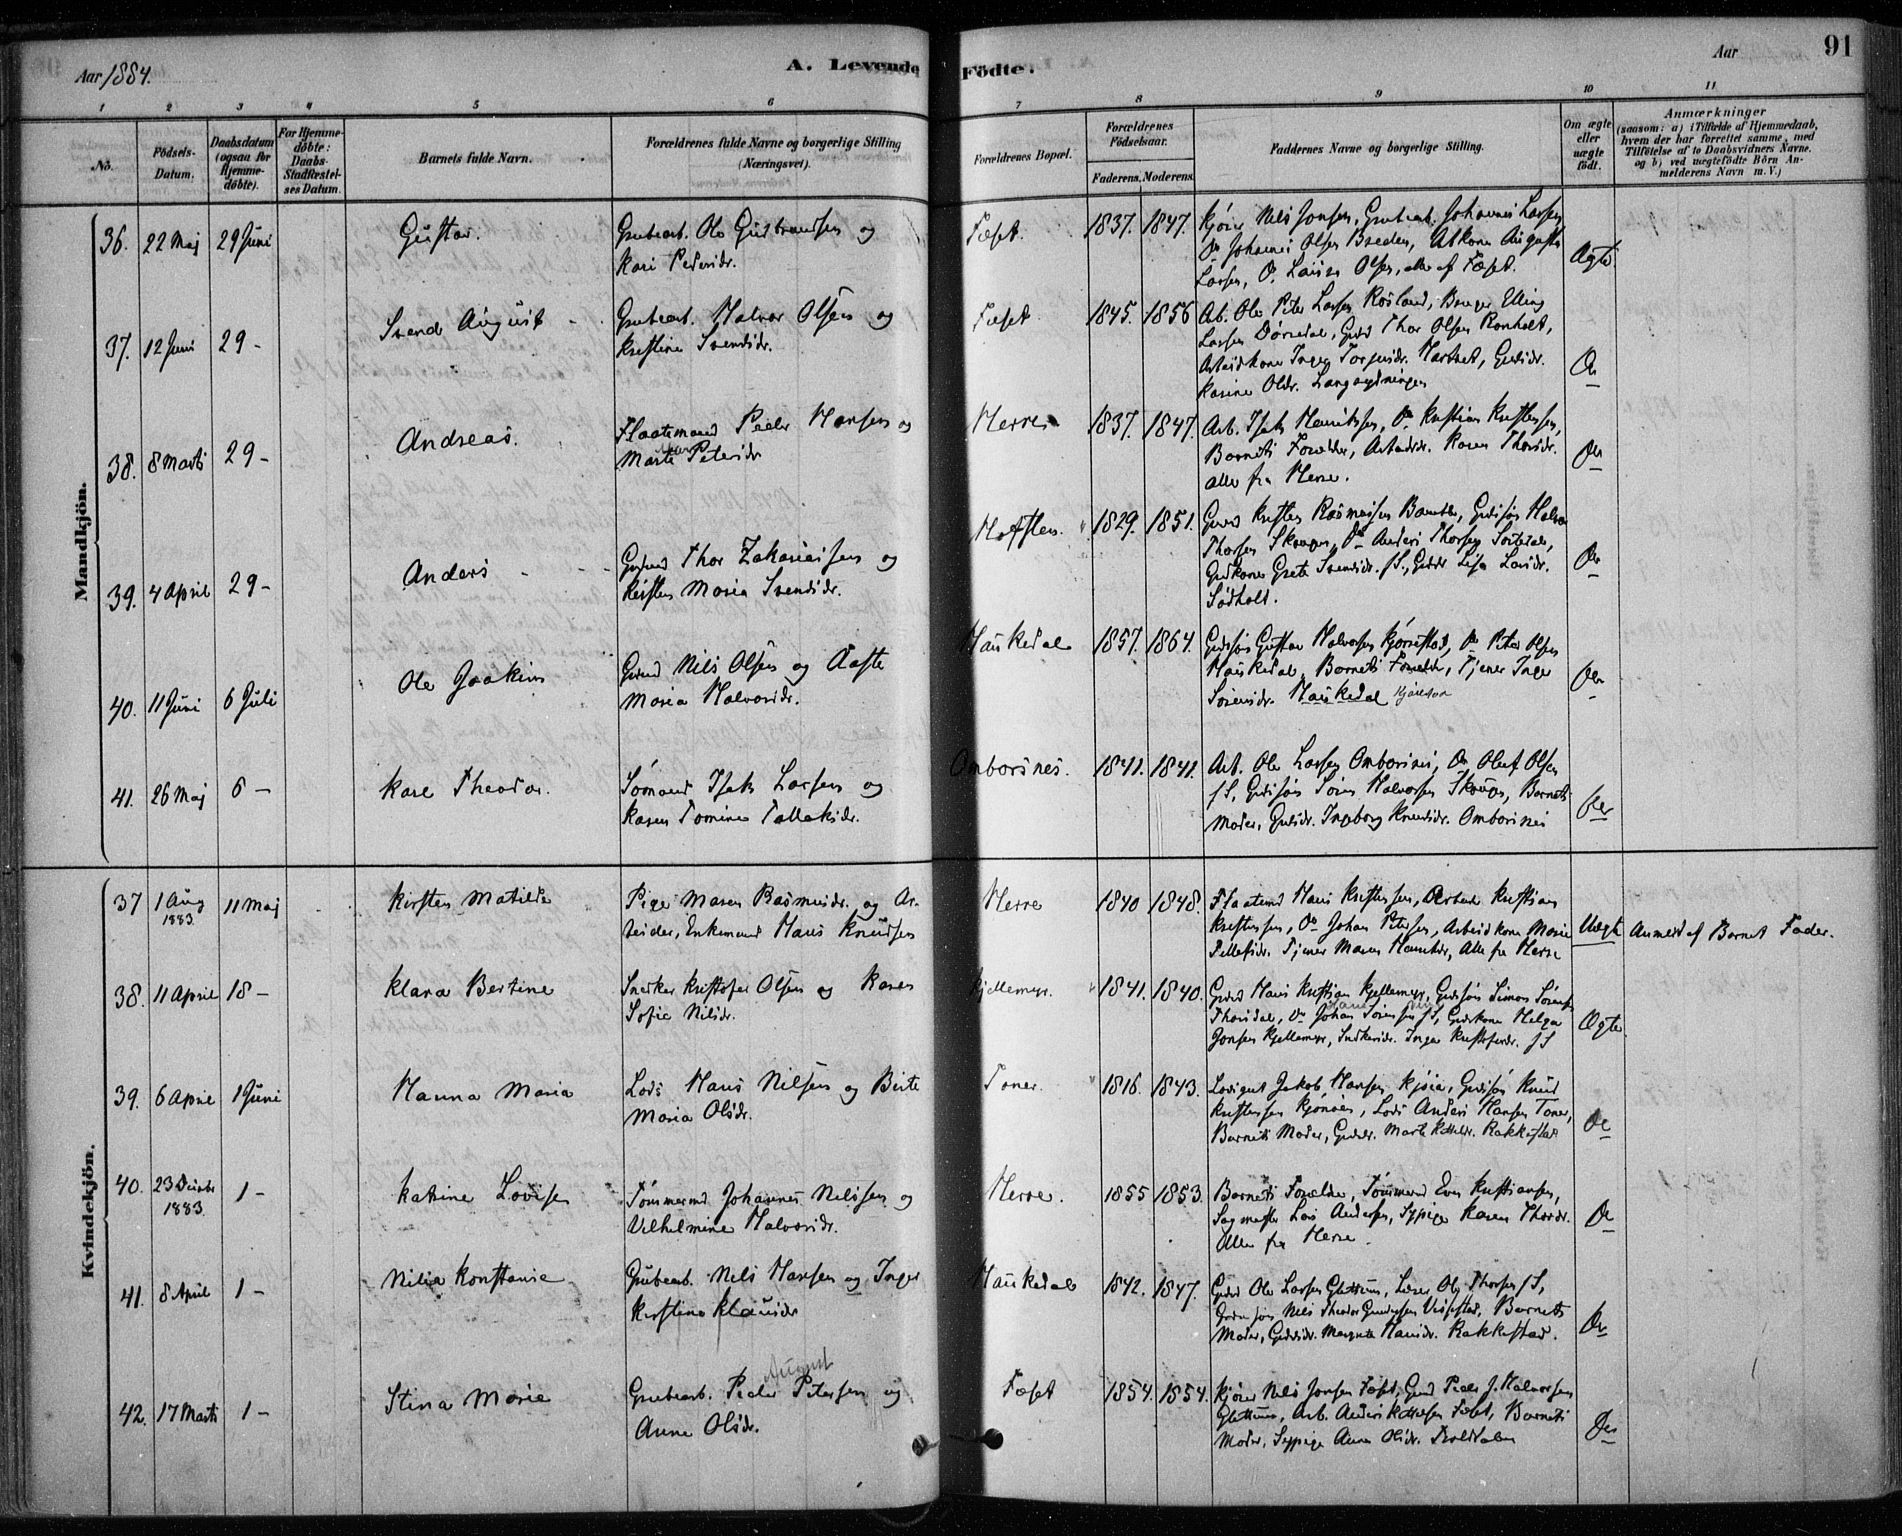 Aar 1884.
A. Levende Födte.
Aar
91
1 2 3 4 5 6 7 8 9 10 11
No.
Födsels-Datum.
Daabsdatum (ogsaa for Hjemme-döbte).
For Hjemme-döbte: Daabs-Stadfæstel-ses Datum.
Barnets fulde Navn.
Forældrenes fulde Navne og borgerlige Stilling (Næringsvei).
Forældrenes Bopæl.
Forældrenes Födselsaar.
Faderens. Moderens.
Faddernes Navne og borgerlige Stilling.
Om ægte eller uægte födt.
Anmærkninger
(saasom: a) i Tilfælde af Hjemmedaab,
hvem der har forrettet samme, med
Tilföielse af to Daabsvidners Navne.
og b) ved uægtefödte Börn An-
melderens Navn m. V.)
Mandkjön.
36. 22 Maj 29 Juni Gustav. Grubearb. Ole Gudbrandsen og
Kari Pedersdr.
Fæset. 1837. 1847. Kjører Nils Jonsen, Grubearb. Johannes Larsen
Do Johannes Olsen Breden, Arbkone Augusta
Larsen, Do Laura Olsen, alle af Fæset. Ægte.
37. 12 Juni 29 - Svend August - Grubearb. Halvor Olsen og
Kristine Svendsdr.
Fæset. 1845. 1856 Arb. Ole Peter Larsen Rosland, Bruger Elling
Larsen Dørdal, Gbrd Thor Olsen Ronholt,
Arbeidkone Inger Torjusdr. Gbrdsdr.
Karine Olsdr. Langrydningen Do
38. 8 Marts 29 - Andreas. Flaatemand Peder Hansen og
Marte Petersdr
Herre 1837. 1847. Arb. Isak Henriksen, Do Kristian Kristensen,
Barnets Forældre, Arbeidsdr. Karen Thorsdr.
alle fra Herre. Do
39. 4 April 29 - Anders - - - Gbrd Thor Zakariassen og
Kirsten Maria Svendsdr.
1829. 1851. Gbrd Kristen Rasmussen Bamble, Gbrdsøn Halvor
Thorsen Skougen, Do Anders Thorsen
Gbrdkone Grete Svendsdr. f.S., Gbrdsdr Lisa Larsdr.
Sødholt. Do
40. 11 Juni 6 Juli Ole Joakim Gbrd Nils Olsen og Aaste
Maria Halvorsdr.
Haukedal 1857. 1864. Gbrdsøn Gustav Halvorsen Kjørrestad, Do Peter Olsen
Haukedal, Barnets Forældre, Tjener Inger
Sørensdr. Haukedal Do
41. 26 Maj 6 - Karl Theodor. Sømand Isak Larsen og
Karen Tomine Tallaksdr.
Omborsnes. 1841. 1841. Arb. Ole Larsen Omborsnes, Do Oluf Olsen
f.S, Gbrdsøn Søren Halvorsen Skougen, Barnets
Moder, Gbrdsdr. Ingeborg Knudsdr. Omborsnes Do
Kvindekjön.
37 1 Aug 1883 11 Maj Kirsten Matilde Pige Maren Rasmusdr. og Ar-
beider, Enkemand Hans Knudsen
Herre 1840 1848. Flaatemd Hans Kristensen, Arbeider Kristian
Kristensen, Do Johan Petersen, Arbeidkone Marie
Pellesdr. Tjener Maren Hansdr, Alle fra Herre Uægte Anmeldt af Barnets Fader.
38. 11 April 18 - Klara Bertine Snedker Kristofer Olsen og Karen
Sofie Nilsdr.
Kjellemyr. 1841. 1840. Gbrd Hans Kristian Kjellemyr, Gbrdsøn Simon Sørensen
Thorsdal, Do Johan Sørensen f.S, Gbrdkone Helga
Jonsen Kjellemyr, Snedkersdr. Inga Kristofersdr. f.S Ægte
39. 6 April 1 Juni Hanna Maria Lods Hans Nilsen og Birte
Maria Olsdr.
Toner. 1816. 1843. Lodsgut Jakob Hansen Kjøia, Gbrdsøn Knud
Kristensen Kjønøen, Lods Anders Hansen Toner,
Barnets Moder, Gbrdsdr. Marte Rakkestad Do
40. 23 Decbr 1883 1 - Katrine Lovise Tømmermd Johannes Nilssen og
Vilhelmine Halvorsdr.
Herre. 1855 1853. Barnets Forældre, Tømmermd Even Kristiansen,
Sagmester Lars Andersen, Sypige Karen Thorsdr.
Alle fra Herre. Do
41. 8 April 1 - Nilia Konstanse Grubearb. Nils Hansen og Inger
Kirstine Klausdr
Haukedal 1842. 1847. Gbrd Ole Larsen Glittum, Lærer Ole Thorsen f.S,
Gbrdsøn Nils Theodor Gundersen Vissestad, Barnets
Moder, Gbrdsdr. Margrete Hansdr. Rakkestad. Do
42. 17 Marts 1 - Stina Marie Grubearb. Peder August Petersen og
Anne Olsdr.
Fæset 1854. 1854. Kjører Nils Jonsen Fæset, Gbrd Peder J. Halvorsen
Glittum, Arb. Anders Fæset, Barnets
Moder, Sypige Anne Olsdr. Do